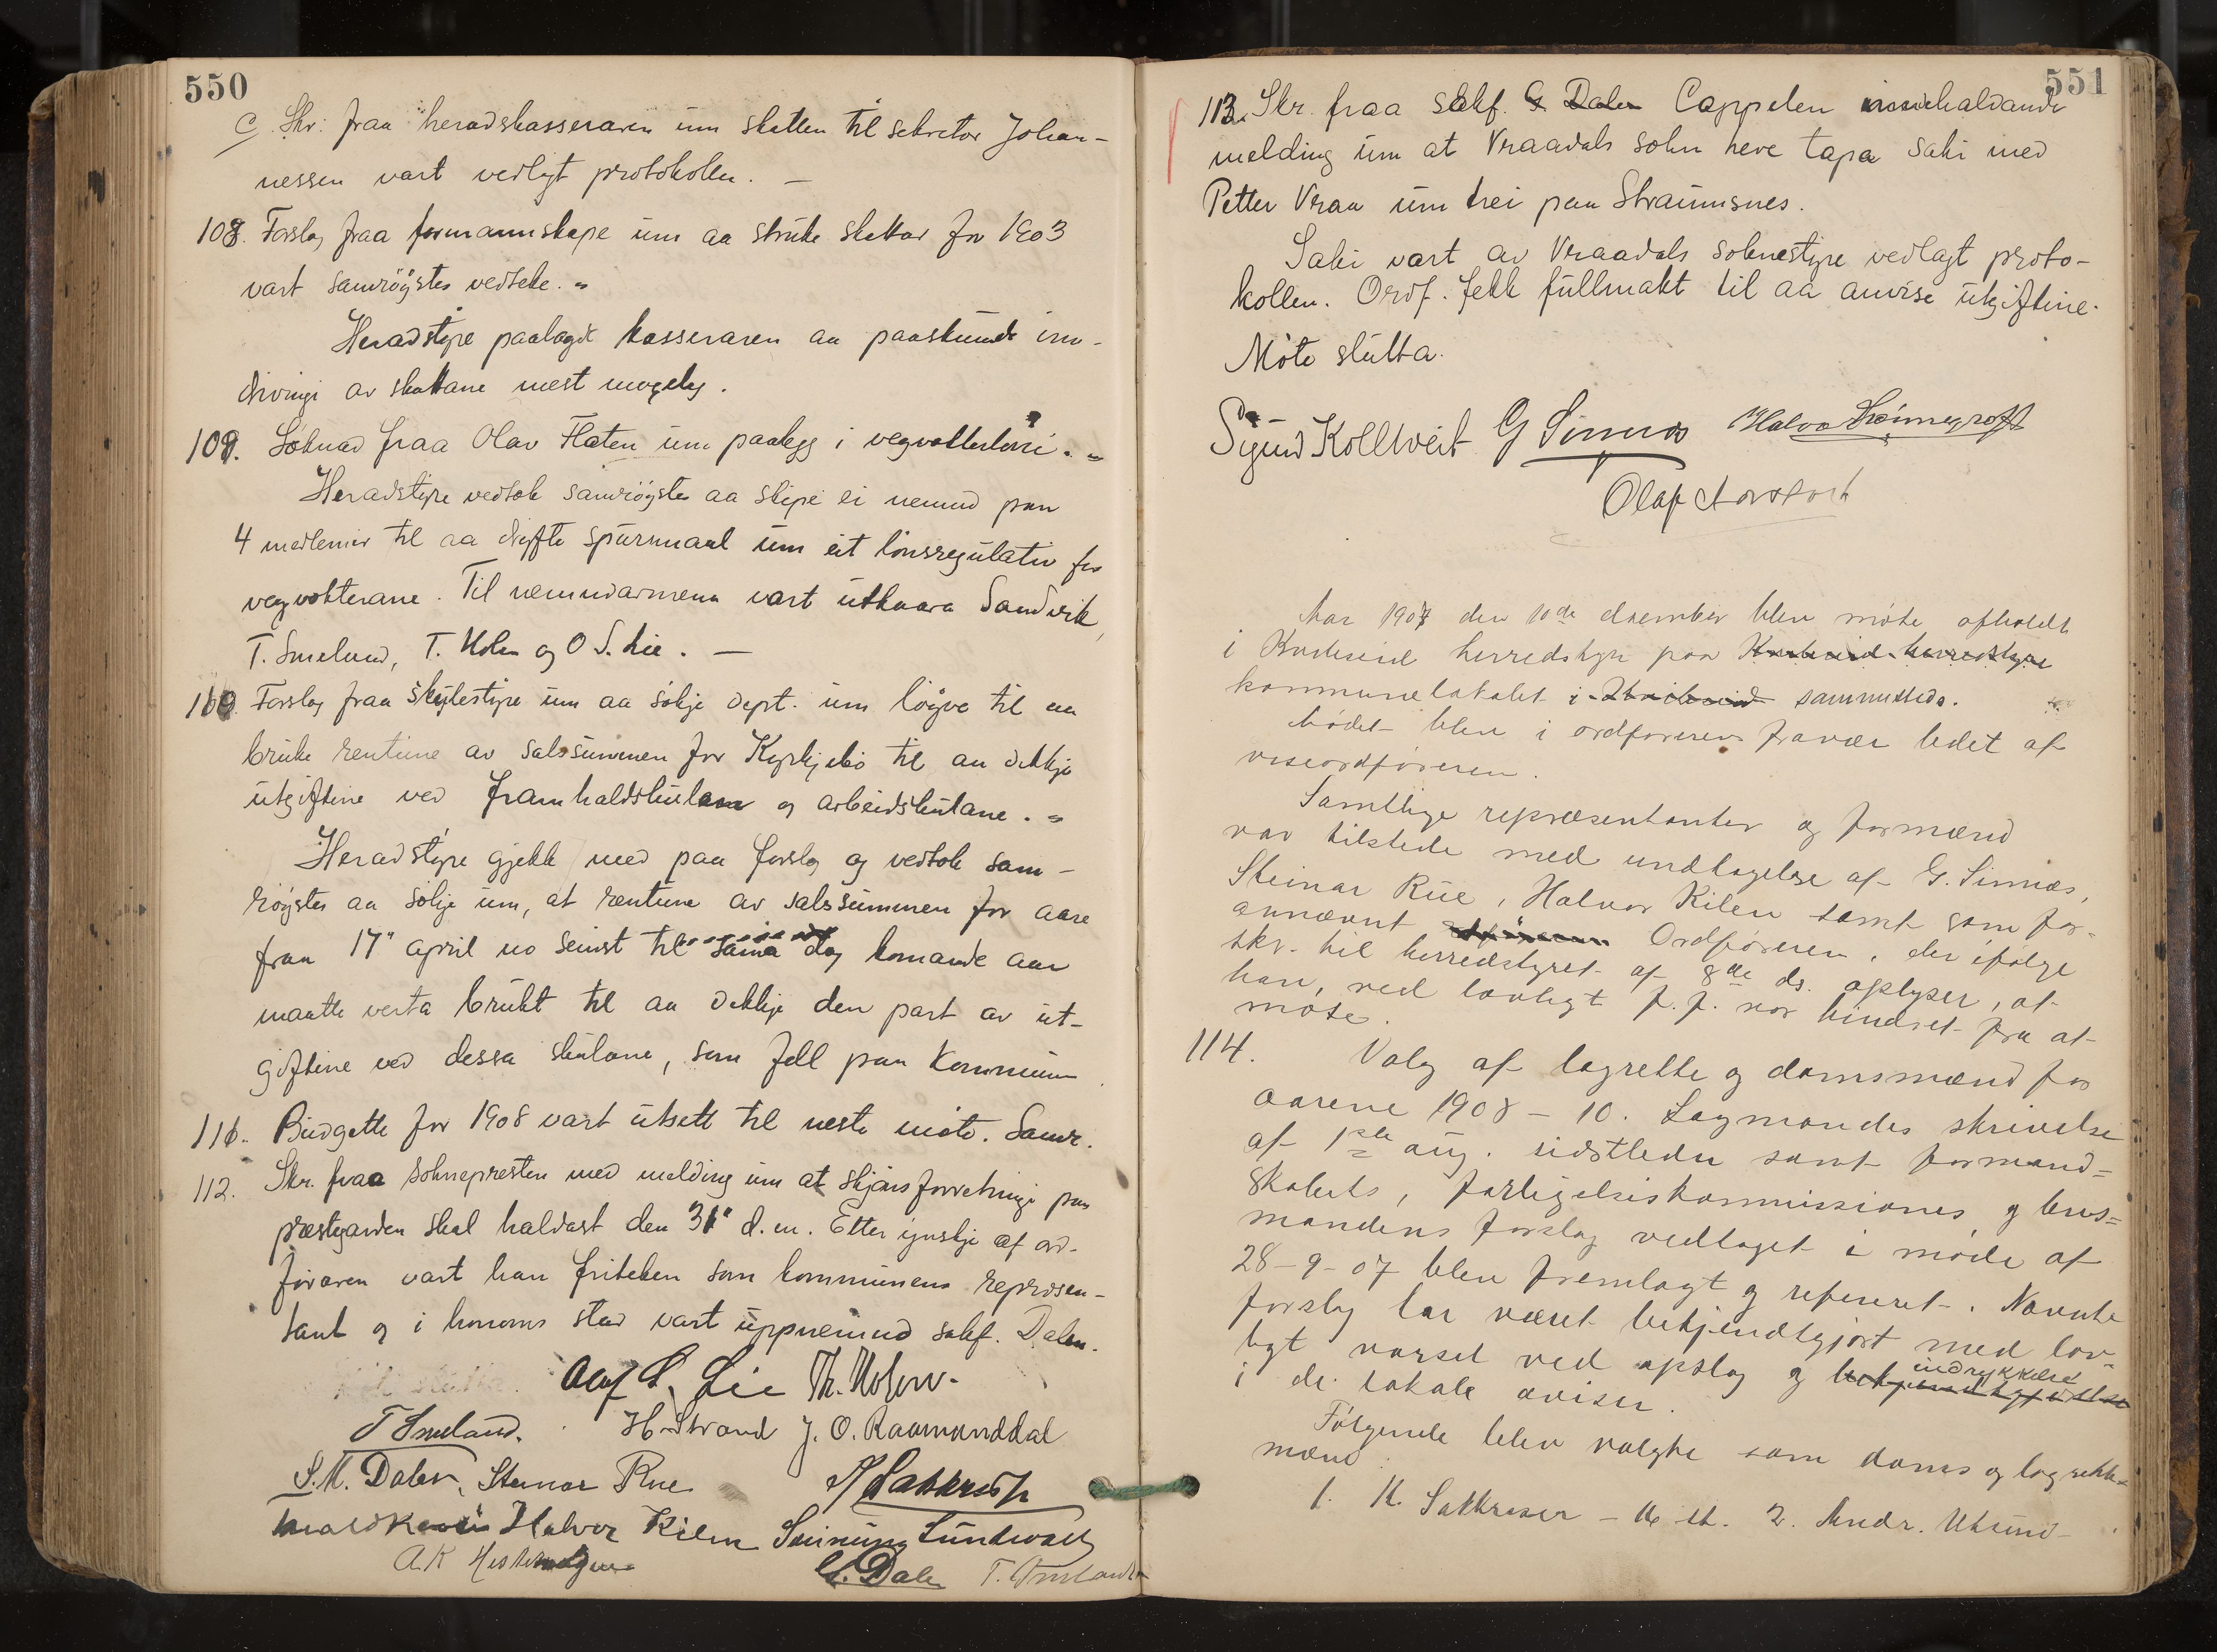 550
C. Skr. fraa heradskasseraren um skatten til sekretær Johan-
nessen vart vedlagt protokollen. —
108. Forslag fraa formannskape um aa struke skattar for 1903
vart samrøystes vedteke.
Heradstyre paalagde kasseraren aa paaskunde inn-
drivingi av skattane mest mogeleg.
109. Søknad fraa Olav Flaten um paalegg i vegvokterløni.
Heradstyre vedtok samrøystes aa skipe ei nemnd paa
4 medlemer til aa drøfte spursmaal um eit lønsregulativ for
vegvokterane. Til nemndarmenn vart utkaara Sandvik,
T. Smeland, T. Holen og O S. Lie. —
110. Forslag fraa skulestyre um aa søkje dept. um løyve til aa
bruke rentune av salssummen for Kyrkjebø til aa dekkje
utgiftine ved framhaldskulane og arbeidskulane.
Heradstyre gjekk med paa forslag og vedtok sam-
røystes aa søkje um, at rentune av salssummen for aare
fraa 17" april no seinst til sama dag komande aar
maatte verta brukt til aa dekkje den part av ut-
giftine ved dessa skulane, som fell paa Kommunen.
111. Budgette for 1908 vart utsett til neste møte. Samr.
112. Skr. fraa soknepresten med melding um at skjønsforretningi paa
prestegarden skal haldast den 31" d.m. Etter ynskje af ord-
føraren vart han friteken som kommunens represen-
tant og i honoms stad vart uppnemnd sakf. Dalen.
Olaf S. Lie Th. Holen.
T Smeland. H. Strand J. O. Raamunddal
S. M. Dalen, Steinar Rue
Halvor Kilen
G. Dalen T. Smeland
551
113. Skr. fraa sakf. G Dalen Cappelen innehaldande
melding um at Vraadals sokn heve tapa saki med
Petter Vraa um trei paa Straumsnes.
Saki vart av Vraadals soknestyre vedlagt proto-
kollen. Ordf. fekk fullmakt til aa anvise utgiftine.
Møte slutta.
Sigurd Kolltveit G Sinnes
Olaf
Aar 1907 den 10de desember blev møte afholdt
i Kviteseid herredstyre paa Kviteseid herredstyre
kommunelokalet i Kviteseid sammesteds.
Mødet blev i ordførerens fravær ledet af
viseordføreren.
Samtlige repræsentanter og formænd
var tilstede med undtagelse af G. Sinnes,
Steinar Rue, Halvor Kilen samt som for-
annævnt Ordføreren, der ifølge
skr. til herredstyret af 8de ds. oplyser, at
han, ved lovligt f.f. var hindret fra at
møte.
114. Valg af lagrette og domsmænd for
aarene 1908 – 10. Lagmandes skrivelse
af 1ste aug. sidstleden samt formand-
skabets, forligelseskommissiones og lens-
mandens forslag vedtaget i møde af
28-9-07 blev fremlagt og refereret. Nævnte
forslag har været bekjendtgjort med lov-
ligt varsel ved opslag og bekjendtgjørelse indrykkelse
i de lokale aviser.
Følgende blev valgte som doms og lagrette-
mænd
1. K. Sakkreser – 2. Andr. Utsund-